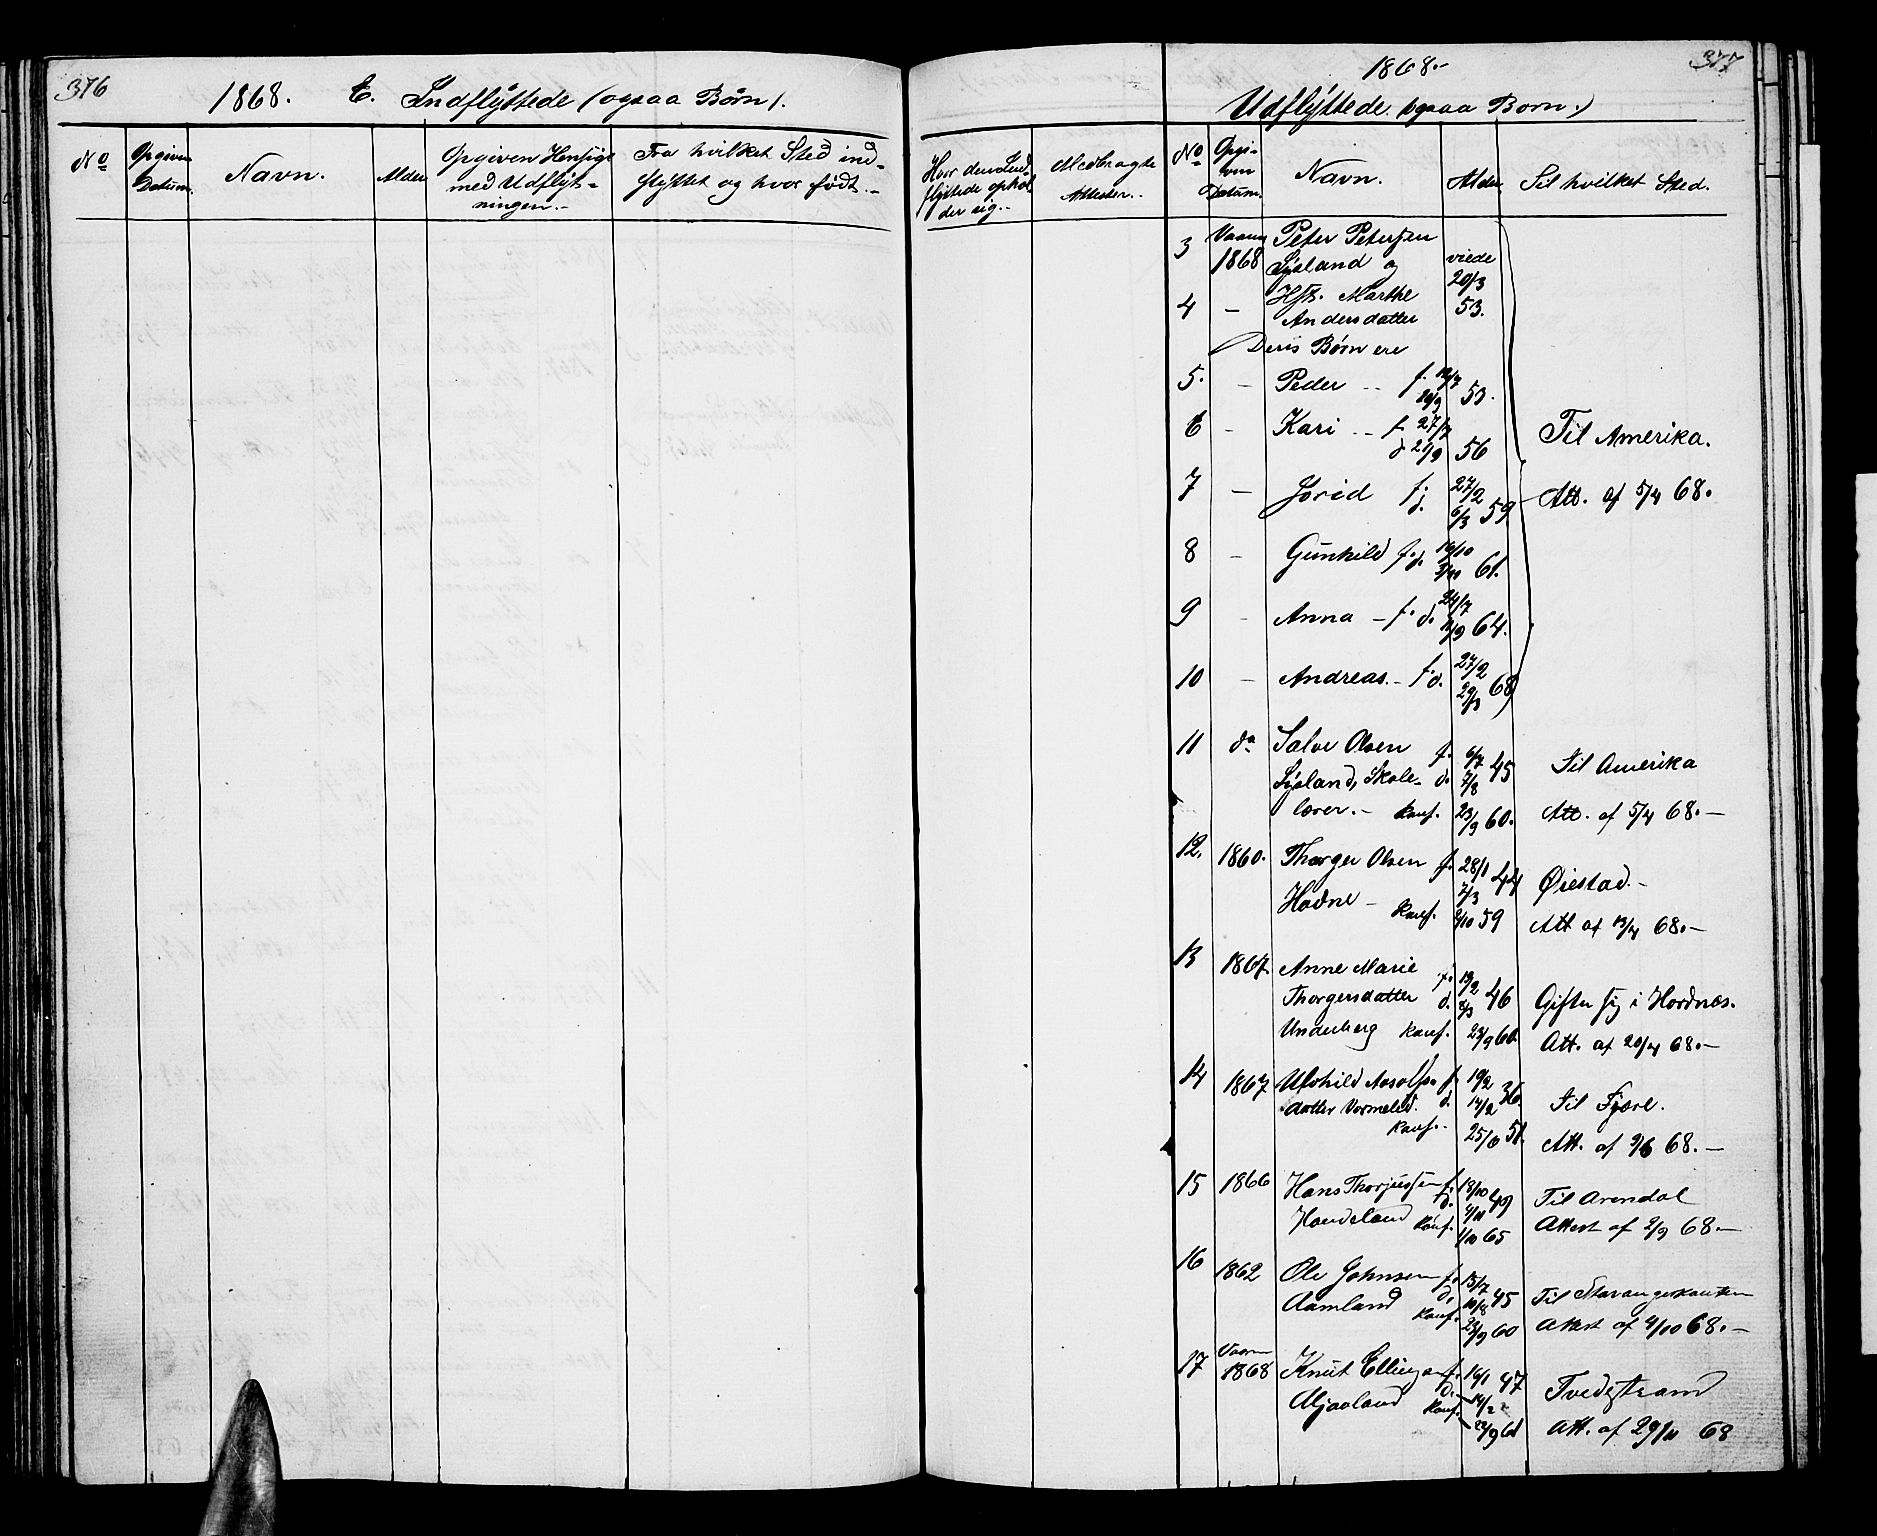 376
1868. E. Indflyttede (ogsaa Børn).
No
Opgiven Datum.
Navn.
Alder
Opgiven Hensigt med Udflytningen.-
Fra hvilket Sted indflyttet og hvor født.-
Hvor den Indflyttede opholder sig.-
Medbragte Attester.-
377
1868.-
Udflyttede (ogsaa Born.)
No
Opgiven Datum.
Navn.
Alder
Til hvilket Sted.
3 Vaaren 1868 Peter Petersen
Lysland og viede 20/3
4 - Hst. Marthe 53.
Andersdatter
Deris Børn ere
5. - Peder f. 12/7
53.
6 - Kari f. 27/7
d 21/9 56
Til Amerika.
7 - Jorid f. 27/2
d. 6/3 59
Att. af 5/4 68.
8 - Gunhild f. 16/10
d. 61.
9 - Anna - f. d. 24/7
64.
10 - Andreas. - f. d. 27/2
29/3 68
11 do Salve Olsen f. 6/7
Lysland, Skole- d. 7/8 45 Til Amerika
lærer.- konf. 23/9 60. Att. af 5/4 68.-
12. 1860. Thorger Olsen f. 28/1
7/3 44 Øiestad.-
Hodne - konf. 2/10 59 Att af 13/4 68.-
13 1867. Anne Marie f. 19/2
Thorgersdatter d. 8/3 46 Gifter sig i Hordnæs.
Underberg konf. 23/9 60. Att. af 20/4 68.-
14 1867 Asolfs- f. 10/2
datter Vormelid. d. 14/2 36. Til Fjære.
konf. 25/ 51. Att. af 9/6 68.-
15 1866 Hans Thorjussen f. 18/10
d. 4/11 49 Til Arendal
Haudeland konf. 1/10 65 Attest af 2/9 68.-
16 1862 Ole Johnsen f. 13/7
Aamland d. 10/8 45 Til Stavangerkanten
konf. 23/9 60 Attest af 4/10 68.-
17 Vaaren 1868 Knut Ellingsen f. 16/1 47
Mjaaland d. 14/2 Tvedestrand
konf. 22/9 61 Att. af 29/11 68